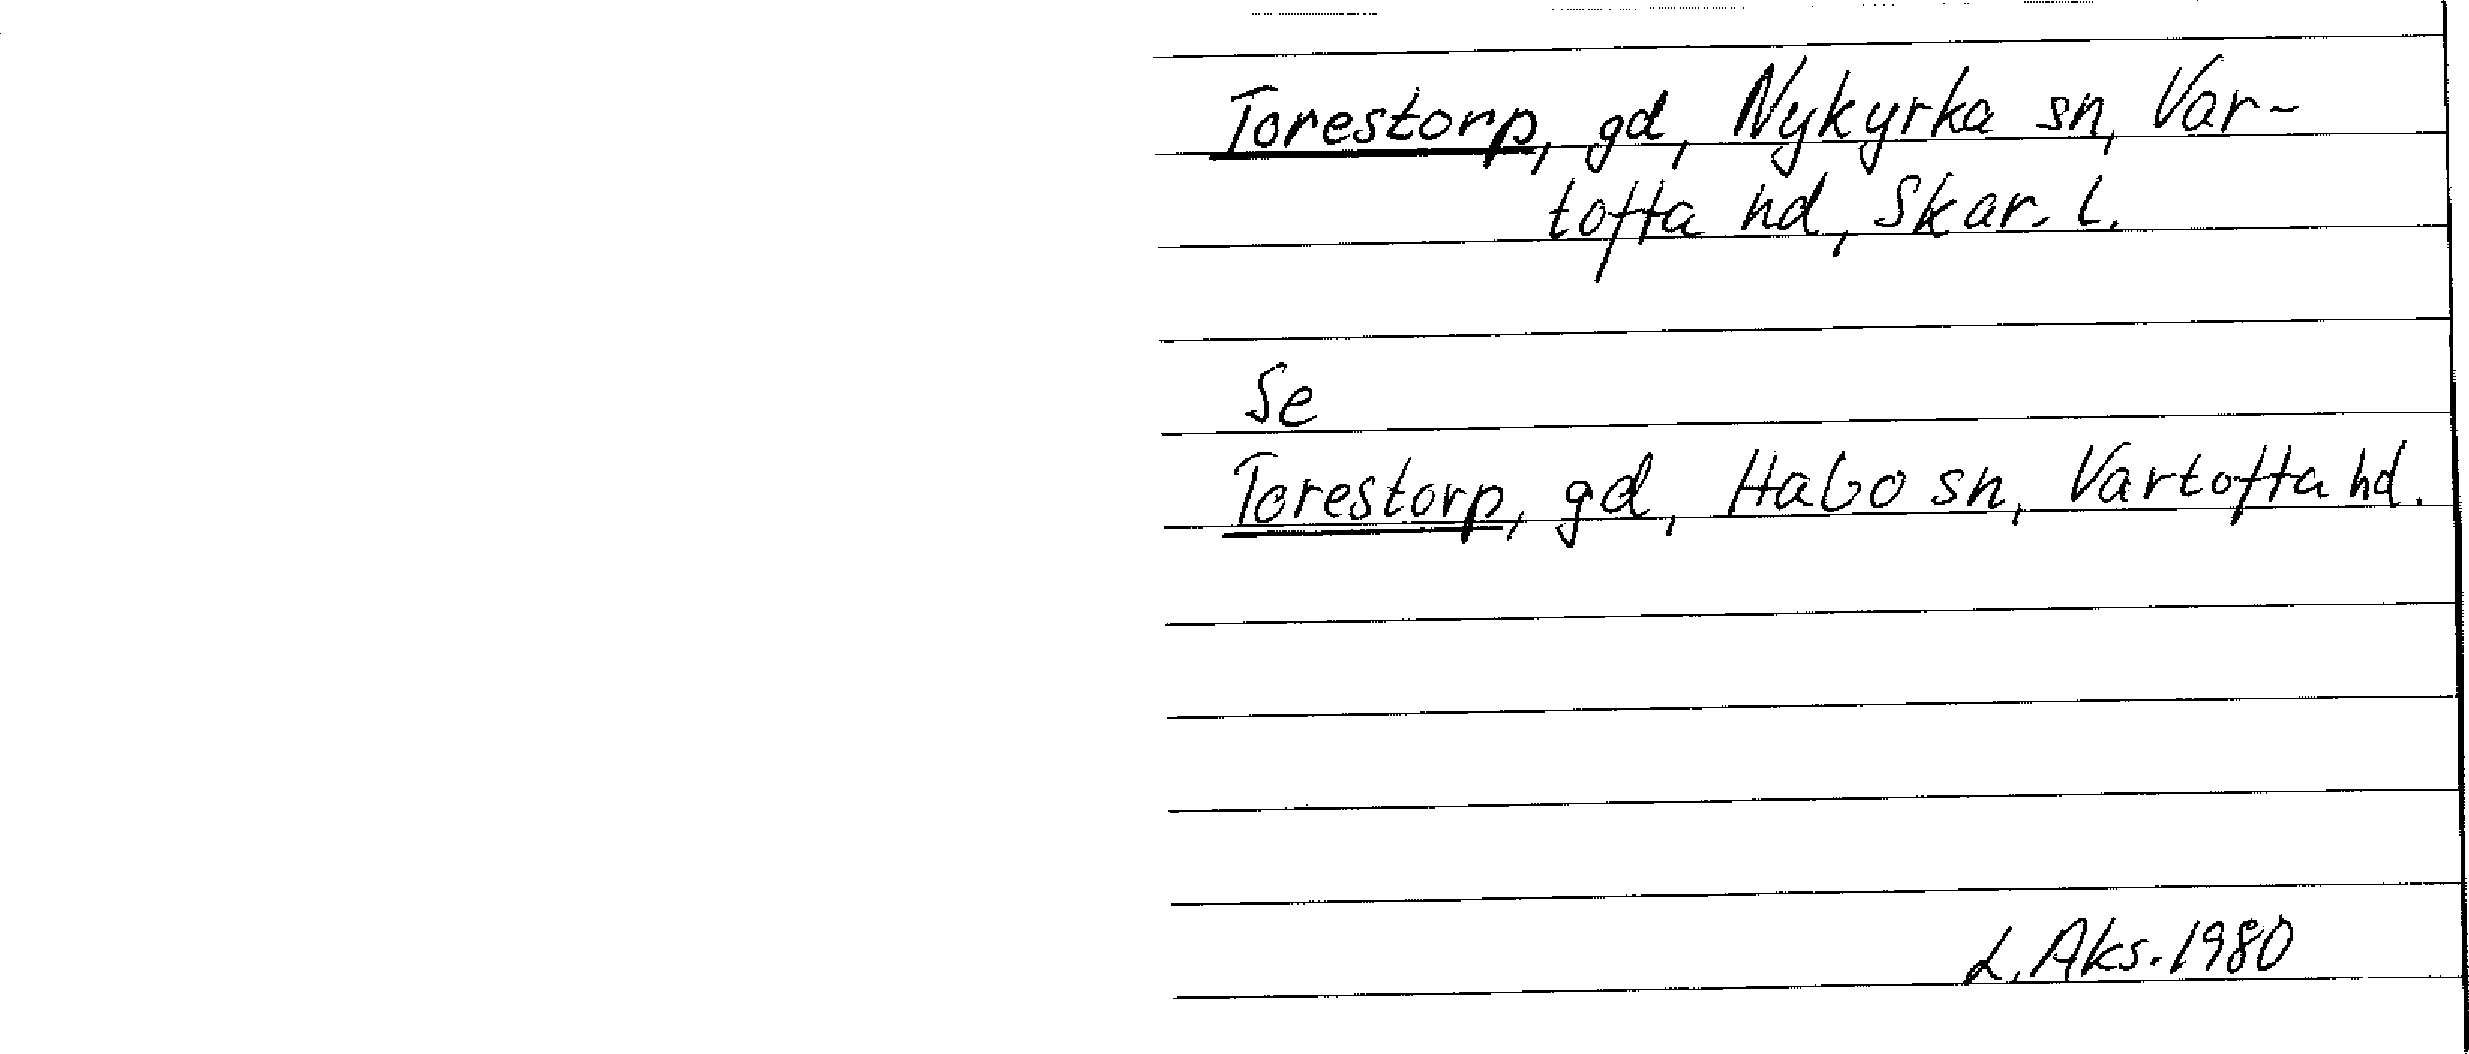 Torestorp, gd, Nykyrka sn, Var-
tofta hd, Skar. L.
Se
Torestorp, gd, Habo sn, Vartofta hd.
L. Aks. 1980